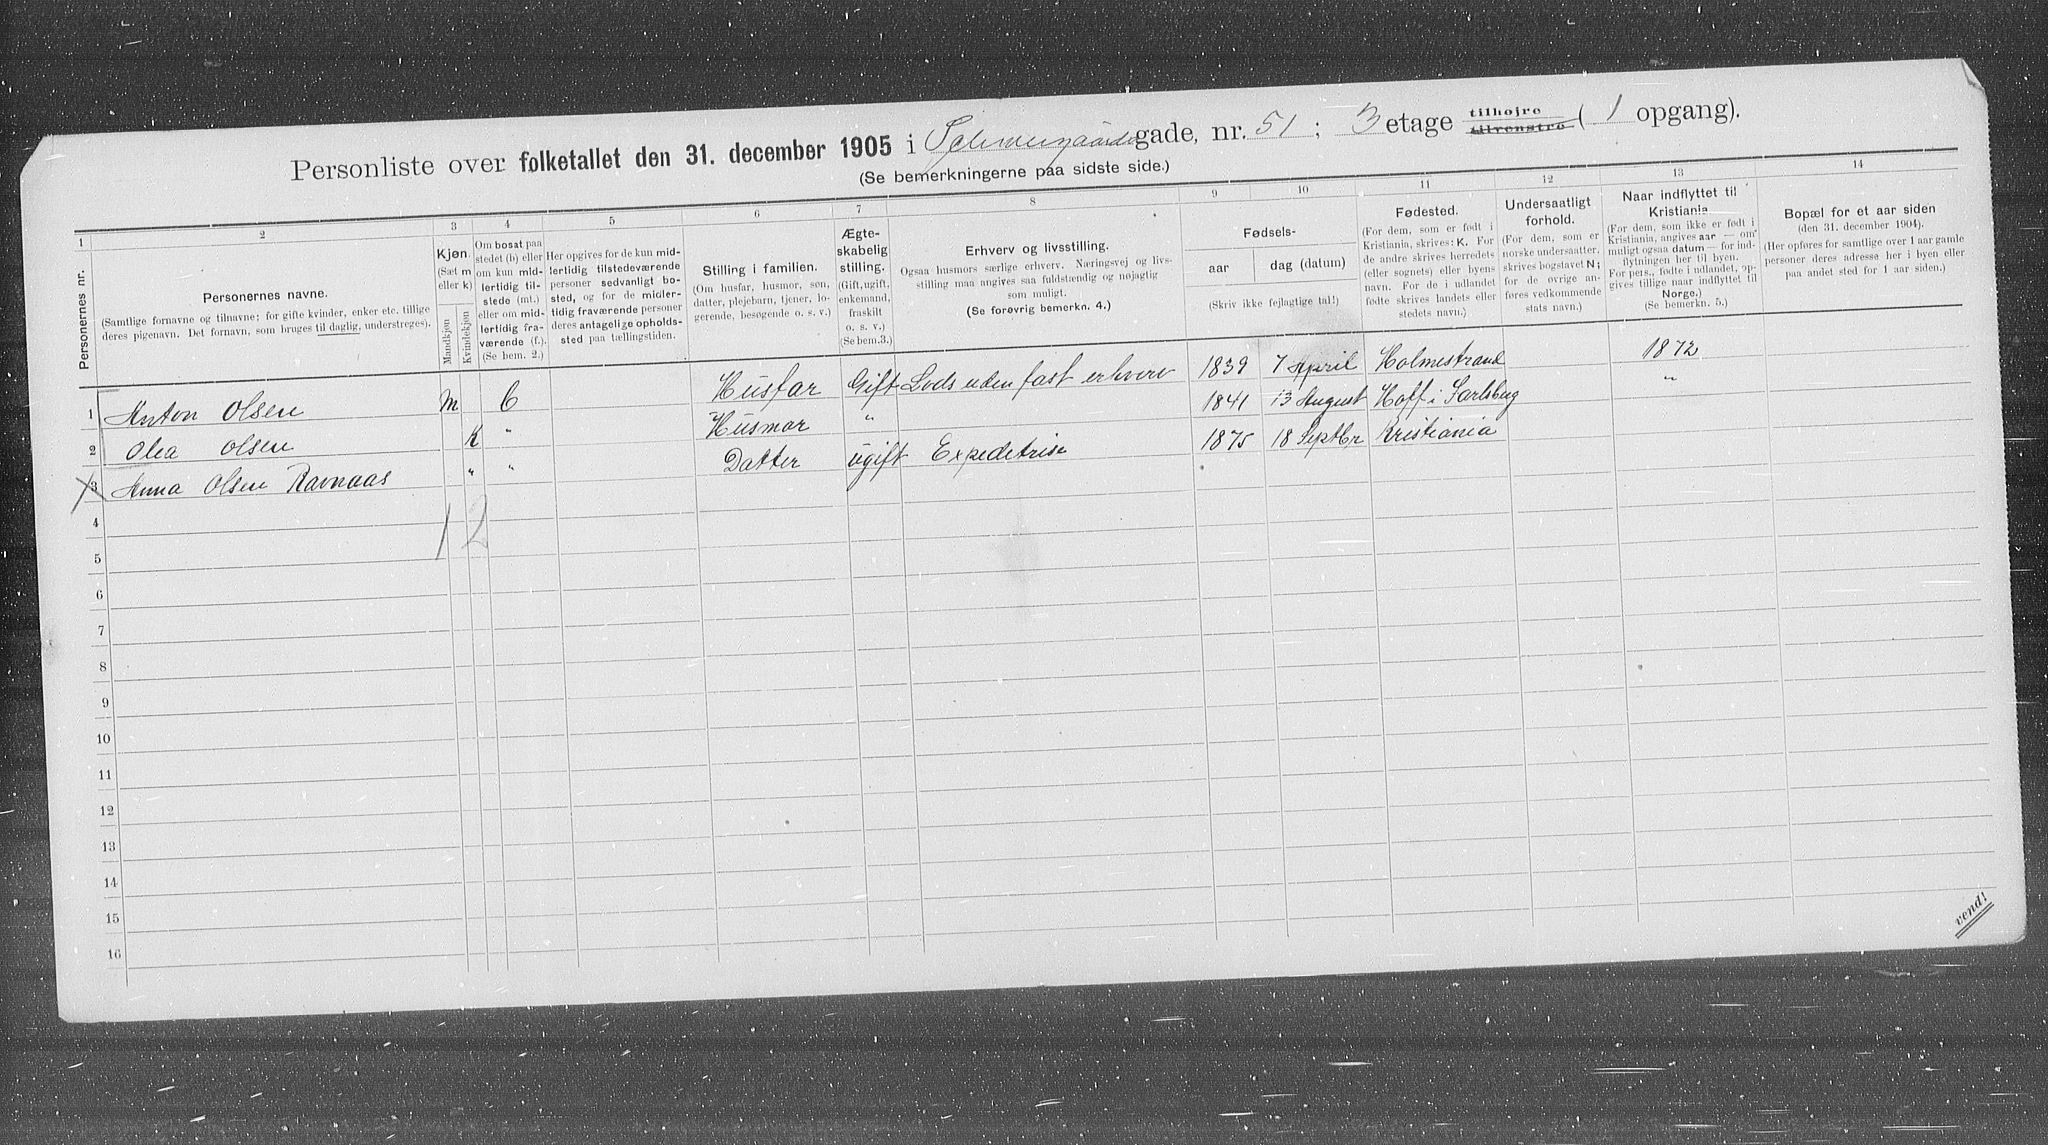 Personliste over folketallet den 31. december 1905 i Schwensgaards gade, nr. 51 ; 3 etage tilhøjre tilvenstre ( 1 opgang).
(Se bemerkningerne paa sidste side.)
1 2 3 4 5 6 7 8 9 10 11 12 13 14
Personernes nr.
Personernes navne.
(Samtlige fornavne og tilnavne; for gifte kvinder, enker etc. tillige
deres pigenavn. Det fornavn, som bruges til daglig, understreges).
Kjøn.
(Sæt m
eller k)
Mandkjøn
Kvindekjøn
Om bosat paa
stedet (b) eller
om kun mid-
lertidig til-
stede (mt.)
eller om mid-
lertidig fra-
værende (f.).
(Se bem. 2.)
Her opgives for de kun mid-
lertidig tilstedeværende
personer sedvanligt bo-
sted, og for de midler-
tidig fraværende personer
deres antagelige opholds-
sted paa tællingstiden.
Stilling i familien.
(Om husfar, husmor, søn,
datter, plejebarn, tjener, lo-
gerende, besøgende o. s. v.)
Ægte-
skabelig
stilling.
(Gift, ugift,
enkemand,
fraskilt
o. s. v.)
(Se bem.3.)
Erhverv og livsstilling.
Ogsaa husmors særlige erhverv. Næringsvej og livs-
stilling maa angives saa fuldstændig og nøjagtig
som muligt.
(Se forøvrig bemerkn. 4.)
Fødsels-
aar dag (datum)
(Skriv ikke fejlagtige tal!)
Fødested.
(For dem, som er født i
Kristiania, skrives: K. For
de andre skrives herredets
(eller sognets) eller byens
navn. For de i udlandet
fødte skrives landets eller
stedets navn.)
Undersaatligt
forhold.
(For dem, som er
norske undersaatter,
skrives bogstavet N;
for de øvrige an-
føres vedkommende
stats navn.)
Naar indflyttet til
Kristiania
(For dem, som ikke er født i
Kristiania, angives aar — om
muligt ogsaa datum — for ind-
flytningen her til byen.
For pers., fødte i udlandet, op-
gives tillige naar indflyttet til
Norge.)
(Se bemerkn. 5.)
Bopæl for et aar siden
(den 31. december 1904).
(Her opføres for samtlige over 1 aar gamle
personer deres adresse her i byen eller
paa andet sted for 1 aar siden.)
1 Anton Olsen M b Husfar Gift Lods uden fast erhverv 1839 7 April Holmestrand 1872
2 Olea Olsen K " Husmor " 1841 13 August Hoff i Jarlsberg "
3 Anna Olsen Ravnaas " " Datter ugift Expeditrise 1875 18 Septbr Kristiania
4
1 2
5
6
7
8
9
10
11
12
13
14
15
16
vend!